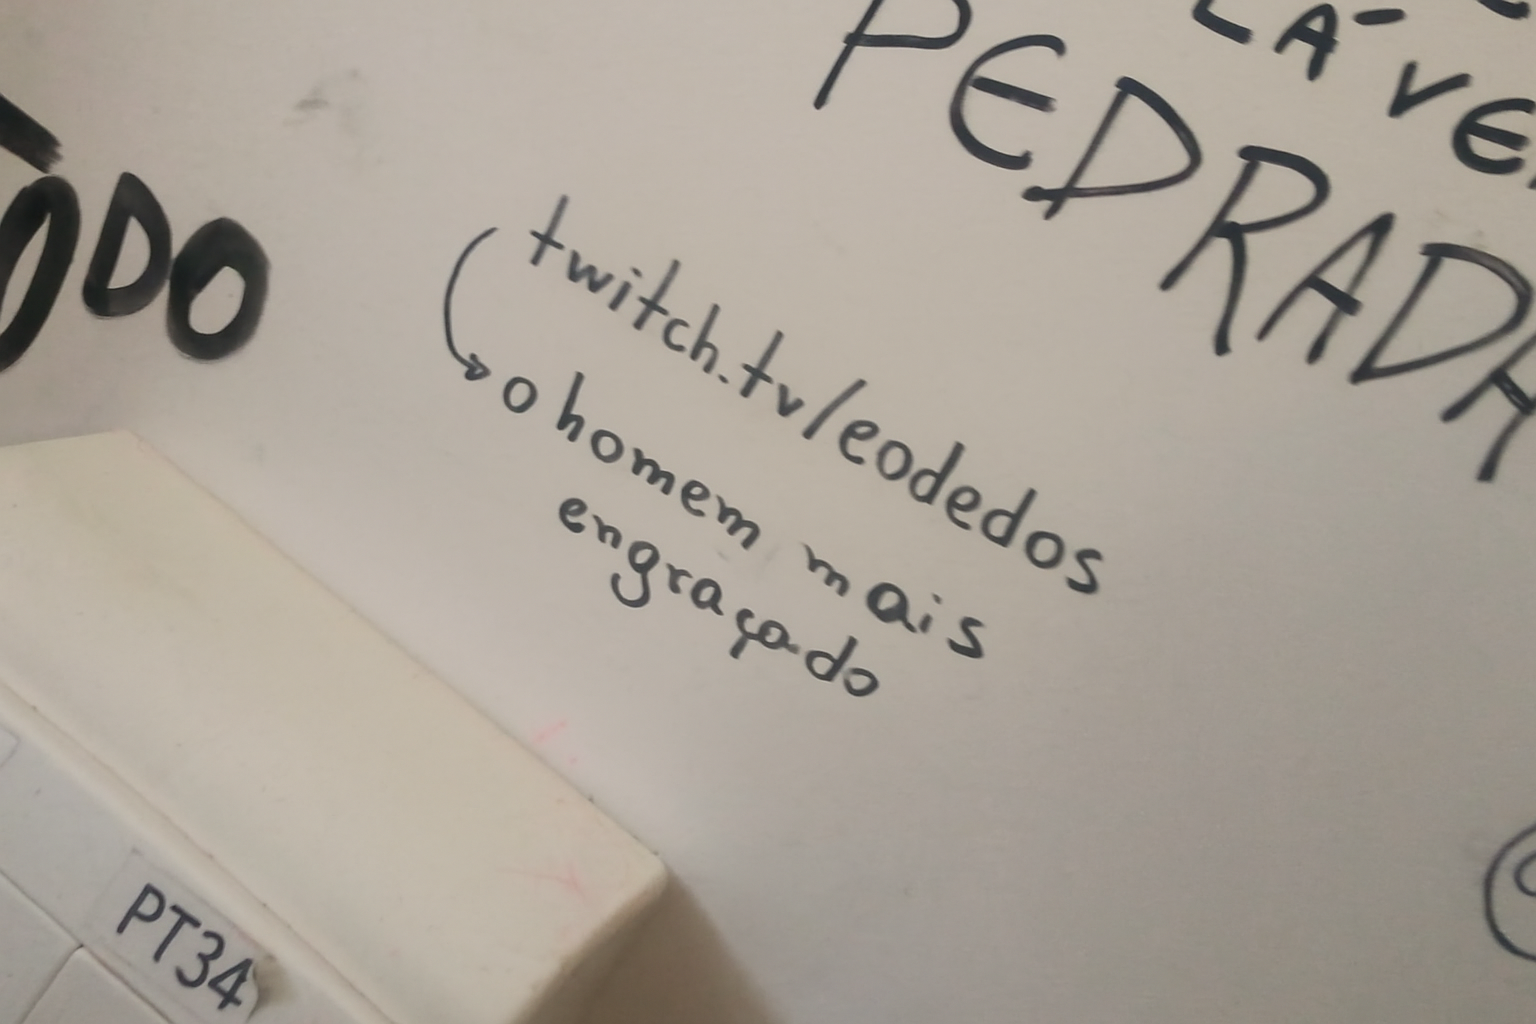 LÁ-
PEDRADA
ODO
twitch.tv/eodedos
o homem mais
engraçado
PT34